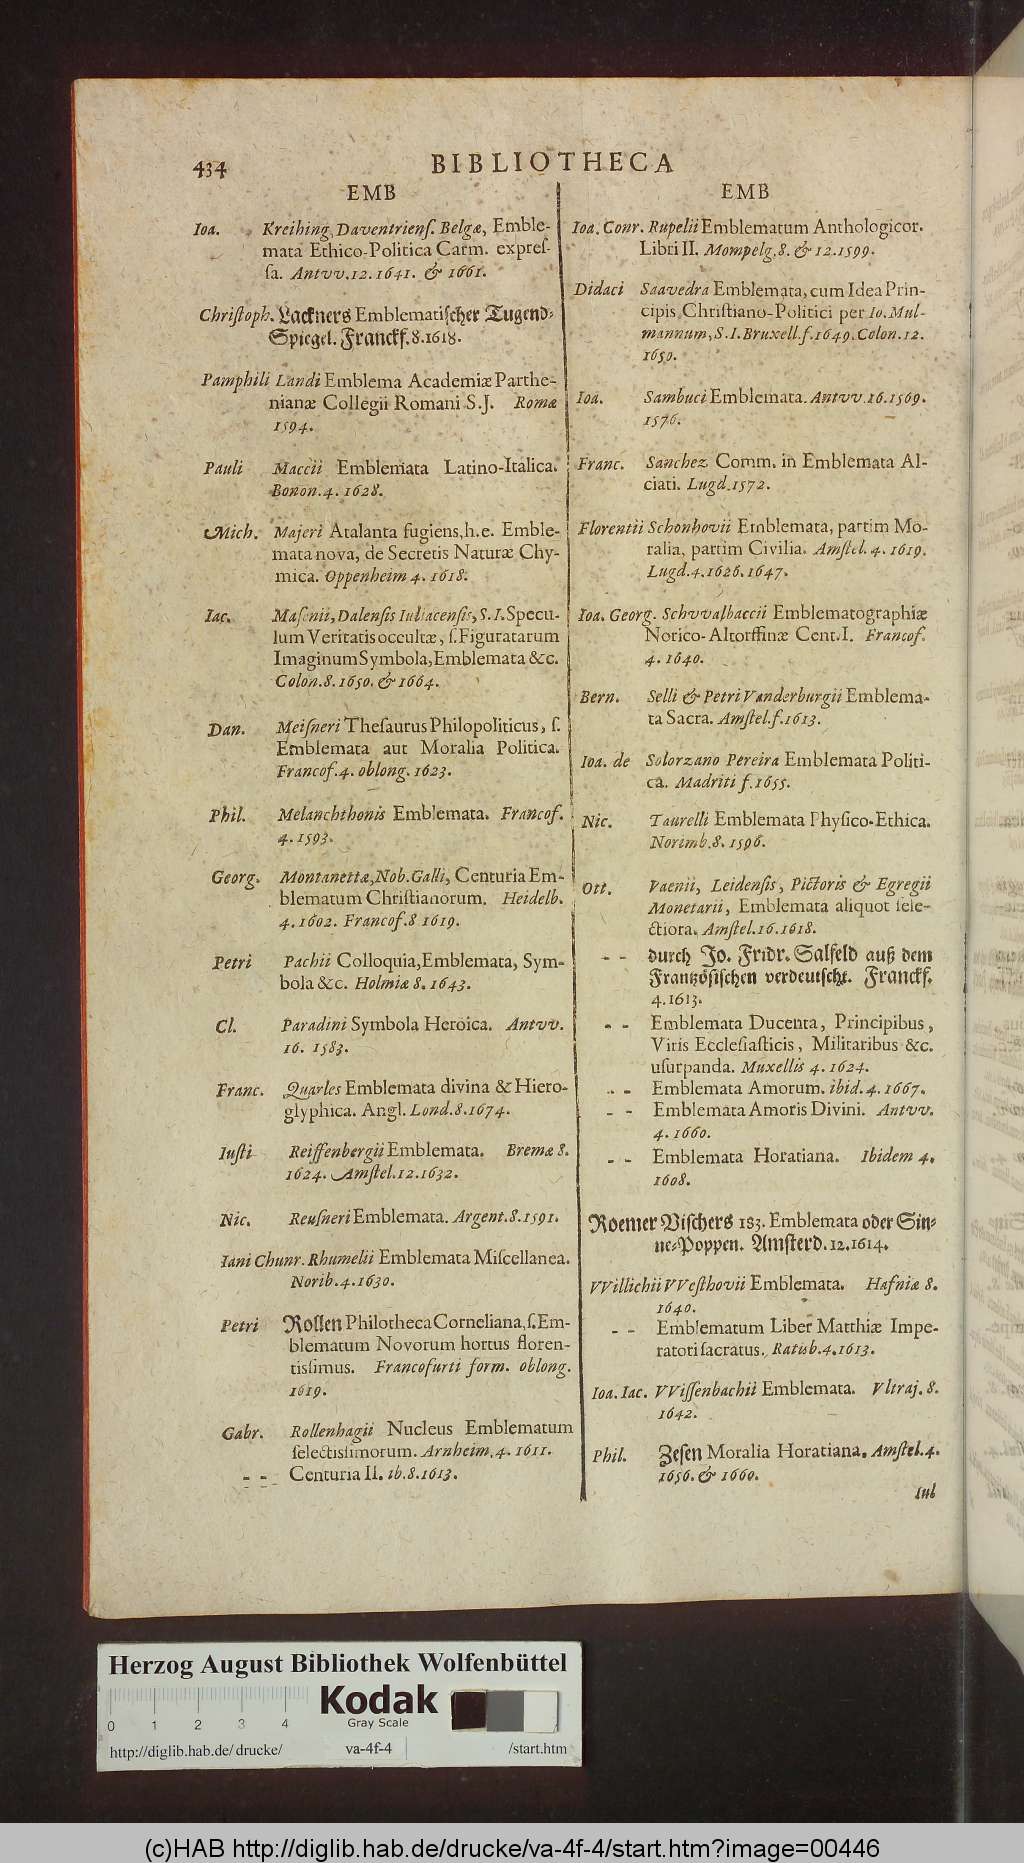 434
BIBLIOTHECA
EMB
Ioa. Kreihing, Daventrienſ. Belgæ, Emble-
mata Ethico-Politica Carm. expreſ-
ſa. Antvv. 12. 1641. & 1661.
Chriſtoph. Lackners Emblematiſcher Tugend-
Spiegel. Franckf. 8. 1618.
Pamphili Landi Emblema Academiæ Parthe-
nianæ Collegii Romani S.J. Romæ
1594.
Pauli Maccii Emblemata Latino-Italica.
Bonon. 4. 1628.
Mich. Majeri Atalanta fugiens, h.e. Emble-
mata nova, de Secretis Naturæ Chy-
mica. Oppenheim 4. 1618.
Iac. Maſenii, Dalenſis Iuliacenſis, S.I. Specu-
lum Veritatis occultæ, ſ. Figuratarum
Imaginum Symbola, Emblemata &c.
Colon. 8. 1650. & 1664.
Dan. Meiſneri Theſaurus Philopoliticus, ſ.
Emblemata aut Moralia Politica.
Francof. 4. oblong. 1623.
Phil. Melanchthonis Emblemata. Francof.
4. 1593.
Georg. Montanettæ, Nob. Galli, Centuria Em-
blematum Chriſtianorum. Heidelb.
4. 1602. Francof. 8 1619.
Petri Pachii Colloquia, Emblemata, Sym-
bola &c. Holmiæ 8. 1643.
Cl. Paradini Symbola Heroica. Antvv.
16. 1583.
Franc. Quarles Emblemata divina & Hiero-
glyphica. Angl. Lond. 8. 1674.
Iuſti Reiffenbergii Emblemata. Bremæ 8.
1624. Amſtel. 12. 1632.
Nic. Reuſneri Emblemata. Argent. 8. 1591.
Iani Chunr. Rhumelii Emblemata Miſcellanea.
Norib. 4. 1630.
Petri Rollen Philotheca Corneliana, ſ. Em-
blematum Novorum hortus floren-
tiſſimus. Francofurti form. oblong.
1619.
Gabr. Rollenhagii Nucleus Emblematum
ſelectiſſimorum. Arnheim. 4. 1611.
- - Centuria II. ib. 8. 1613.
EMB
Ioa. Conr. Rupelii Emblematum Anthologicor.
Libri II. Mompelg. 8. & 12. 1599.
Didaci Saavedra Emblemata, cum Idea Prin-
cipis Chriſtiano-Politici per Io. Mul-
mannum, S.I. Bruxell. f. 1649. Colon. 12.
1650.
Ioa. Sambuci Emblemata. Antvv. 16. 1569.
1576.
Franc. Sanchez Comm. in Emblemata Al-
ciati. Lugd. 1572.
Florentii Schonhovii Emblemata, partim Mo-
ralia, partim Civilia. Amſtel. 4. 1619.
Lugd. 4. 1626. 1647.
Ioa. Georg. Schvvalbaccii Emblematographiæ
Norico-Altorffinæ Cent. I. Francof.
4. 1640.
Bern. Selli & Petri Vanderburgii Emblema-
ta Sacra. Amſtel. f. 1613.
Ioa. de Solorzano Pereira Emblemata Politi-
ca. Madriti f. 1655.
Nic. Taurelli Emblemata Phyſico-Ethica.
Norimb. 8. 1596.
Ott. Vaenii, Leidenſis, Pictoris & Egregii
Monetarii, Emblemata aliquot ſele-
ctiora. Amſtel. 16. 1618.
- - durch Jo. Fridr. Salfeld auß dem
Frantzöſiſchen verdeutſcht. Franckf.
4. 1613.
- - Emblemata Ducenta, Principibus,
Viris Eccleſiaſticis, Militaribus &c.
uſurpanda. Muxellis 4. 1624.
- - Emblemata Amorum. ibid. 4. 1667.
- - Emblemata Amoris Divini. Antvv.
4. 1660.
- - Emblemata Horatiana. Ibidem 4.
1608.
Roemer Viſchers 183. Emblemata oder Sin-
ne-Poppen. Amſterd. 12. 1614.
VVillichii VVeſthovii Emblemata. Hafniæ 8.
1640.
- - Emblematum Liber Matthiæ Impe-
ratori ſacratus. Ratisb. 4. 1613.
Ioa. Iac. VViſſenbachii Emblemata. Vltraj. 8.
1642.
Phil. Zeſen Moralia Horatiana. Amſtel. 4.
1656. & 1660.
Iul
Herzog August Bibliothek Wolfenbüttel
Kodak
Gray Scale
0 1 2 3 4
http://diglib.hab.de/drucke/ va-4f-4 /start.htm
(c)HAB http://diglib.hab.de/drucke/va-4f-4/start.htm?image=00446